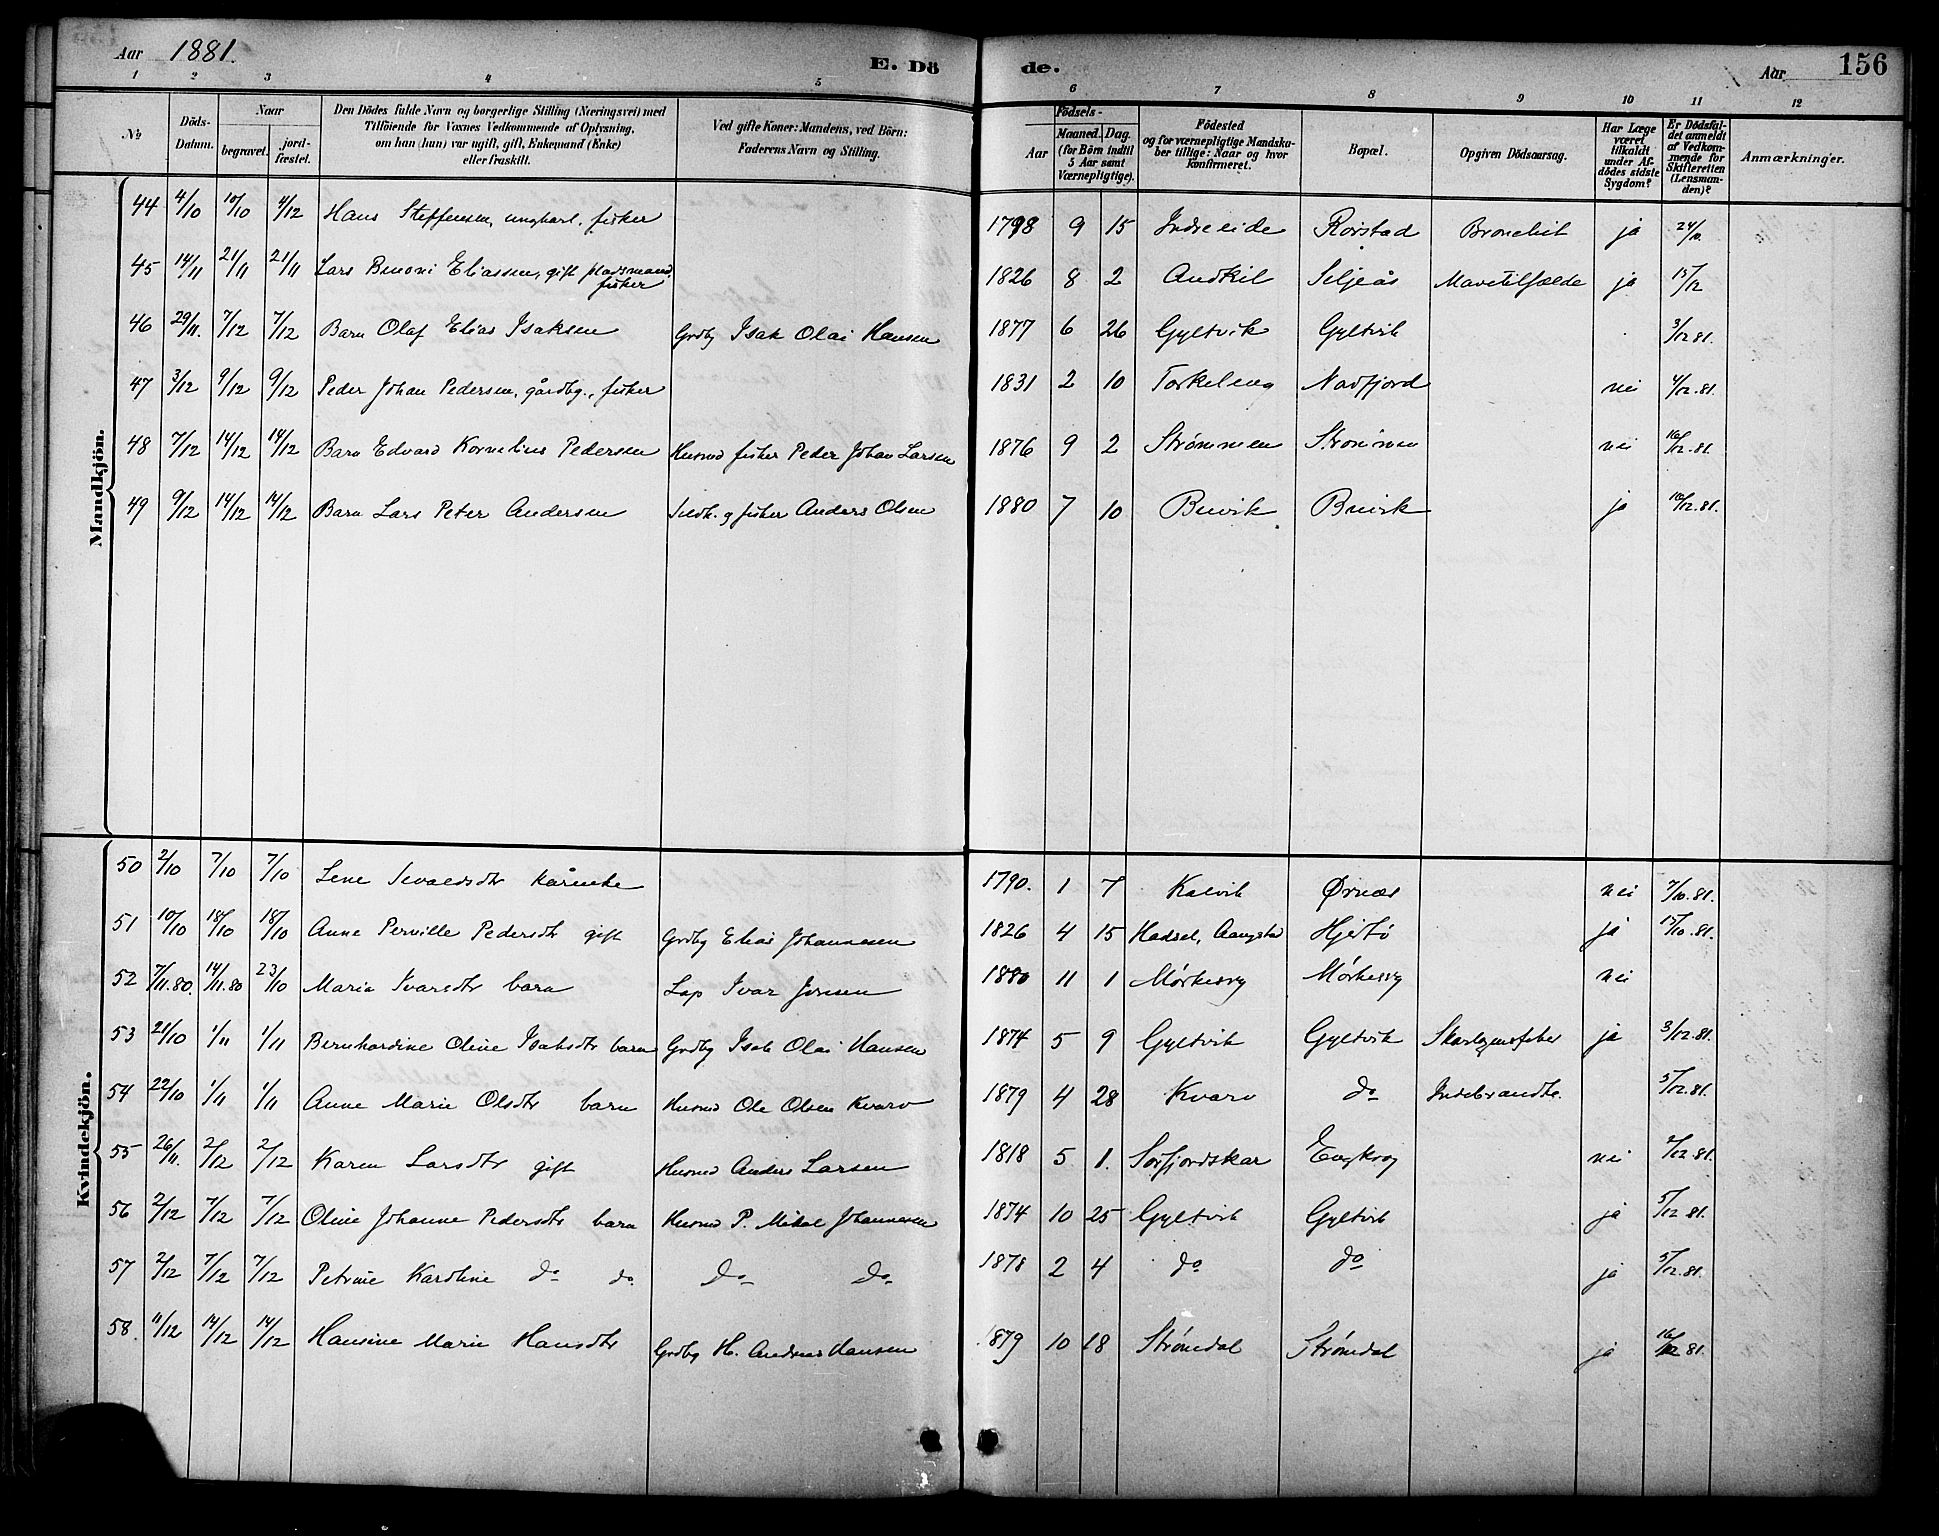 Aar 1881. E. Dö de. Aar 156
1 2 3 4 5 6 7 8 9 10 11 12
No Döds-Datum. Naar begravet. jord-fæstet. Den Dödes fulde Navn og borgerlige Stilling (Næringsvei) med Tilföiende for Voxnes Vedkommende af Oplysning, om han (hun) var ugift, gift, Enkemand (Enke) eller fraskilt. Ved gifte Koner: Mandens, ved Börn: Faderens Navn og Stilling. Födsels- Aar Maaned. Dag. (for Börn indtil 5 Aar samt Værnepligtige). Födested og for værnepligtige Mandska-ber tillige: Naar og hvor konfirmeret. Bopæl. Opgiven Dödsaarsag. Har Læge været tilkaldt under Af-dödes sidste Sygdom? Er Dödsfal-det anmeldt af Vedkom-mende for Skifteretten (Lensman-den)? Anmærkninger.
Mandkjön.
44 4/10 10/10 4/12 Hans Steffensen, ungkarl, fisker 1798 9 15 Indreeide Rørstad Bronchit ja 24/10.
45 14/11 21/11 21/11 Lars Benoni Eliassen, gift pladsmand, fisker 1826 8 2 Andkil Seljeås Mavetilfælde ja 15/12
46 29/11. 7/12 7/12 Barn Olaf Elias Isaksen Grdbg Isak Olai Hansen 1877 6 26 Gyltvik Gyltvik 3/12 81.
47 3/12 9/12 9/12 Peder Johan Pedersen, gårdbg., fisker 1831 2 10 Torkeleng Navfjord nei 4/12.81.
48 7/12 14/12 14/12 Barn Edvard Kornelius Pedersen Husmd fisker Peder Johan Larsen 1876 9 2 Strømmen Strømmen nei 16/12.81.
49 9/12 14/12 14/12 Barn Lars Peter Andersen Indh. g fisker Anders Olsen 1880 7 10 Buvik Buvik ja 10/12.81.
Kvindekjön.
50 2/10 7/10 7/10 Lene Sevaldsdtr kårenke 1790. 1 7 Kalvik Ørnæs nei 7/10.81.
51 10/10 18/10 18/10 Anne Pernille Pedersdtr gift Grdbg Elias Johannesen 1826 4 15 Hadsel, Aangstad Hjertø ja 15/10.81.
52 7/11.80. 14/11.80 23/10 Maria Ivarsdtr barn Lap Ivar Jonsen 1880 11 1 Mørkesvg Mørkesvg nei
53 21/10 1/11 1/11 Bernhardine Oline Isaksdtr barn Grdbg Isak Olai Hansen 1874 5 9 Gyltvik Gyltvik Skarlagensfeber ja 3/12.81.
54 22/10 1/11 1/11 Anne Marie Olsdtr barn Husmd Ole Olsen Kvarv 1879 4 28 Kvarv do Indebrændte 5/12.81.
55 26/11. 2/12 2/12 Karen Larsdtr gift Husmd Anders Larsen 1818 5 1. Sørfjordskar Engkrog nei 2/12 81.
56 2/12 7/12 7/12 Oline Johanne Pedersdtr barn Husmd P. Mikal Johannesen 1874 10 25 Gyltvik Gyltvik ja 5/12 81.
57 2/12 7/12 7/12 Petrine Karoline do do do do 1878 2 4 do do ja 5/12.81.
58. 11/12 14/12 14/12 Hansine Marie Hansdtr Grdbg H. Andreas Hansen 1879 10 18 Strømdal Strømdal ja 16/12 81.